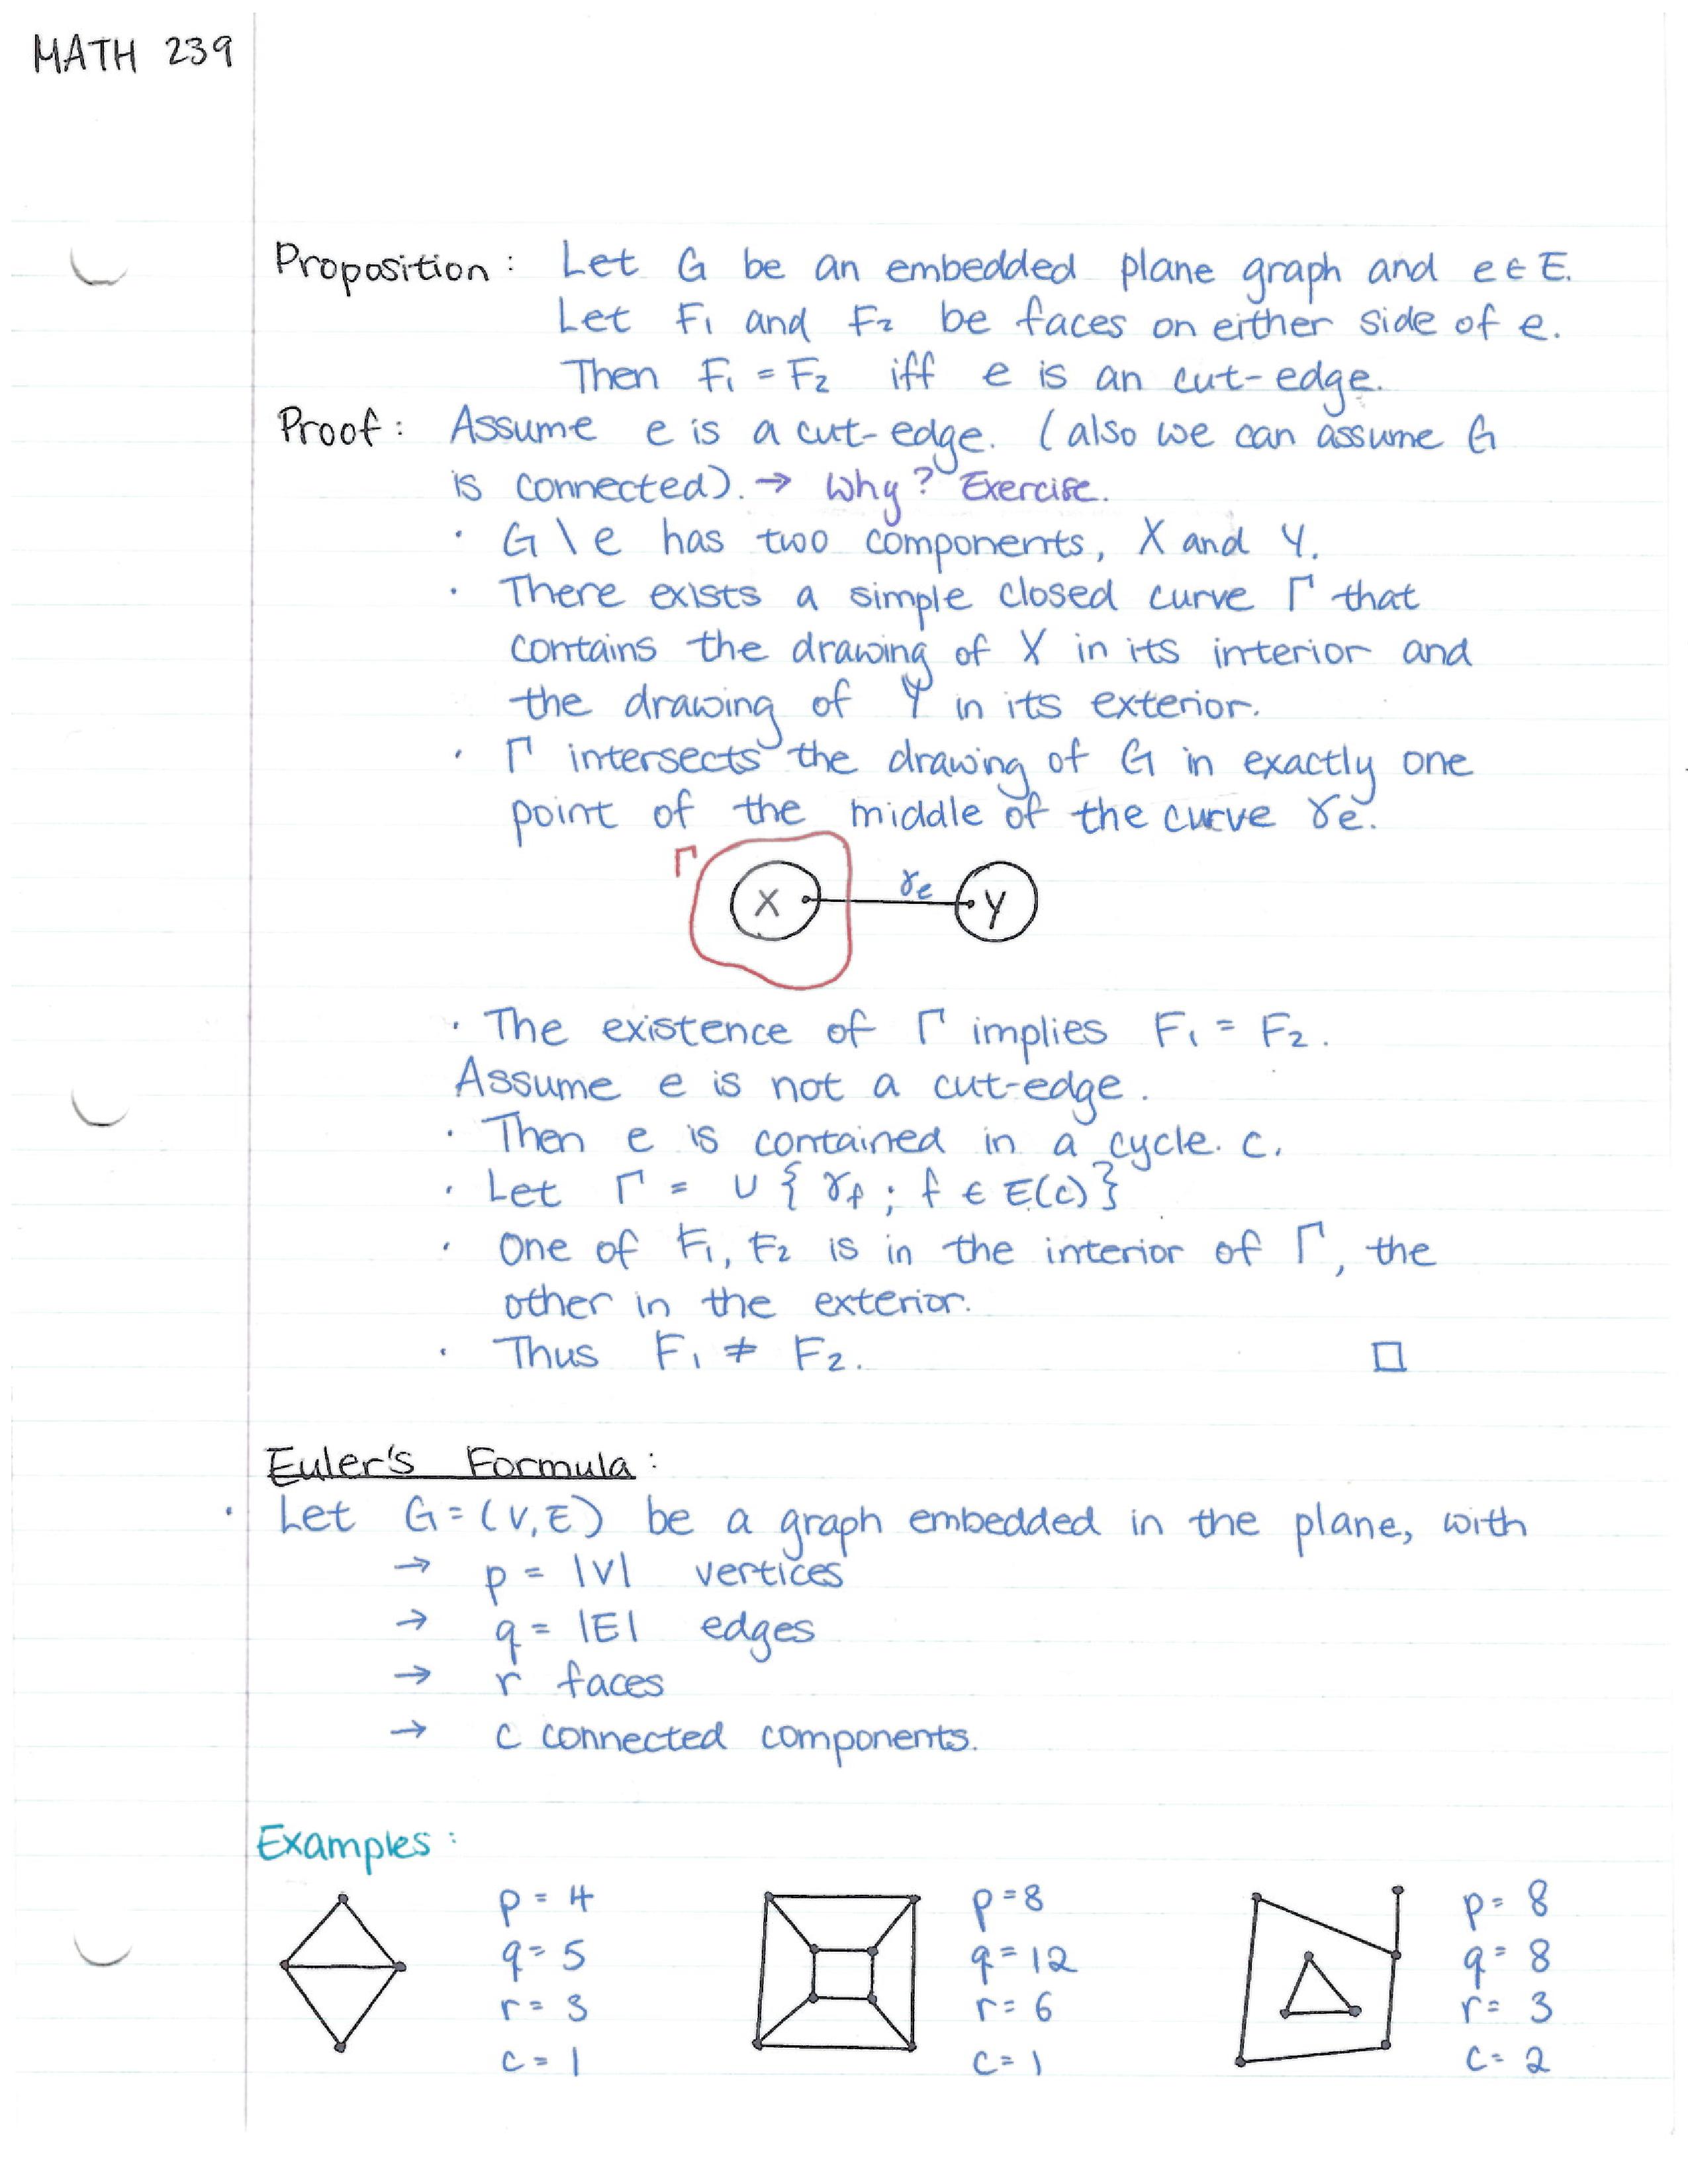 MATH 239
Proposition: Let G be an embedded plane graph and e ∈ E.
Let F₁ and F₂ be faces on either side of e.
Then F₁ = F₂ iff e is an cut-edge.
Proof: Assume e is a cut-edge. (also we can assume G
is connected). → Why? Exercise.
· G \ e has two components, X and Y.
· There exists a simple closed curve Γ that
contains the drawing of X in its interior and
the drawing of Y in its exterior.
· Γ intersects the drawing of G in exactly one
point of the middle of the curve γe.
Γ X γe Y
· The existence of Γ implies F₁ = F₂.
Assume e is not a cut-edge.
· Then e is contained in a cycle. C.
· Let Γ = ∪ { γf ; f ∈ E(C) }
· One of F₁, F₂ is in the interior of Γ, the
other in the exterior.
· Thus F₁ ≠ F₂. □
Euler's Formula:
· Let G = (V, E) be a graph embedded in the plane, with
→ p = |V| vertices
→ q = |E| edges
→ r faces
→ c connected components.
Examples:
p = 4 p = 8 p = 8
q = 5 q = 12 q = 8
r = 3 r = 6 r = 3
c = 1 c = 1 c = 2